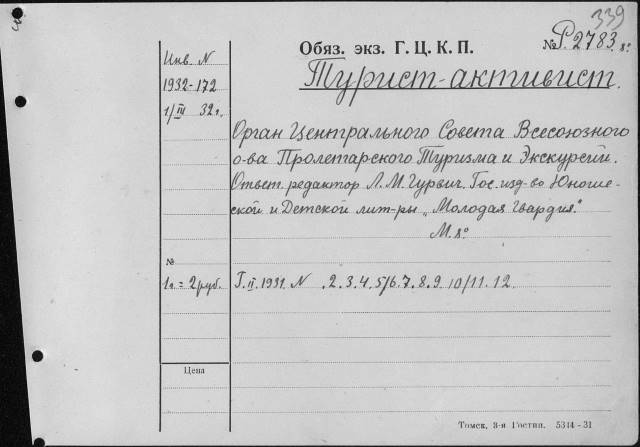 339
Обяз. экз. Г. Ц. К. П.
№ Р. 2783. 8°
Инв. N
1932-172
1/III 32 г.
Турист-активист.
Орган Центрального Совета Всесоюзного
о-ва Пролетарского Туризма и Экскурсий.
Ответ. редактор Л. М. Гурвич. Гос. изд-во Юноше-
ской и Детской лит-ры „Молодая Гвардия".
М. 8°
№
1 г. = 2 руб.
Г. II. 1931. N 2. 3. 4. 5/6. 7. 8. 9. 10/11. 12.
Цена
Томск, 3-я Гостип. 5344 - 31